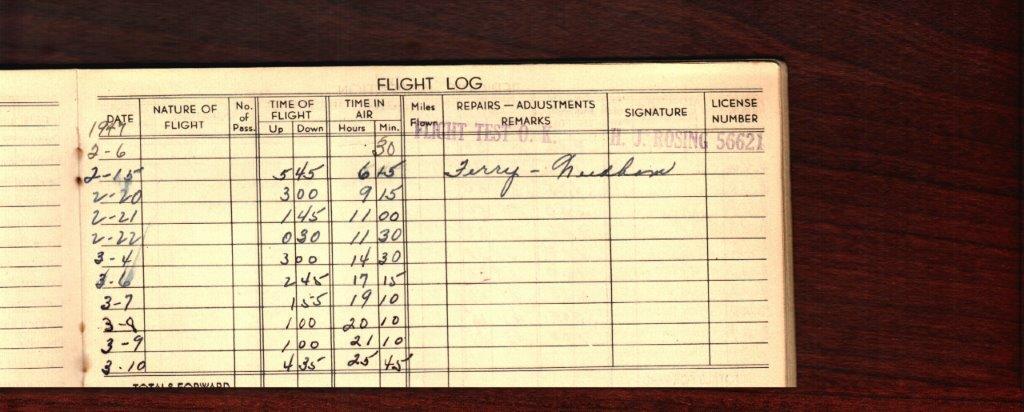 FLIGHT LOG
DATE NATURE OF FLIGHT No. of Pass. TIME OF FLIGHT Up Down TIME IN AIR Hours Min. Miles Flown REPAIRS — ADJUSTMENTS REMARKS SIGNATURE LICENSE NUMBER
1947 FLIGHT TEST O. K. H. J. ROSING 56621
2-6 30
2-15 5 45 6 15 Ferry - Needham
2-20 3 00 9 15
2-21 1 45 11 00
2-22 0 30 11 30
3-4 3 00 14 30
3-6 2 45 17 15
3-7 1 55 19 10
3-8 1 00 20 10
3-9 1 00 21 10
3-10 4 35 25 45
TOTALS FORWARD